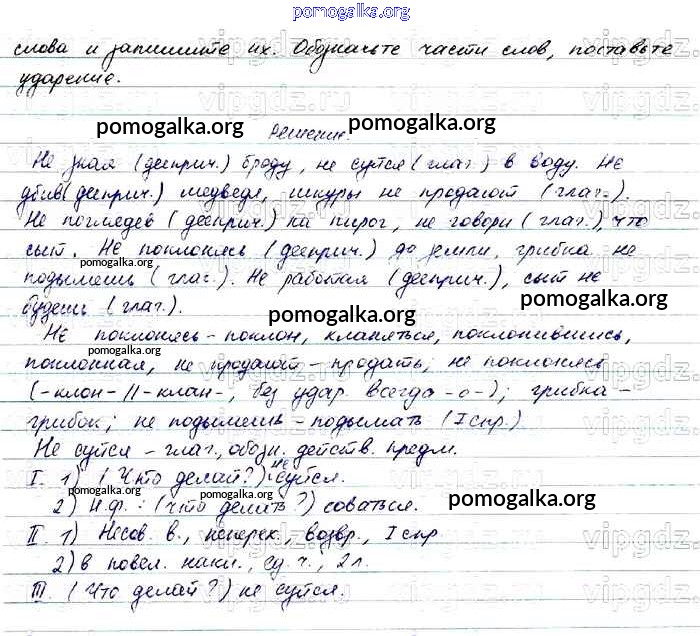 pomogalka.org
слова и запишите их. Обозначьте части слов, поставьте
ударение.
Решение.
Не зная (дееприч.) броду, не суйся (глаг.) в воду. Не
убив (дееприч.) медведя, шкуры не продают (глаг.).
Не поглядев (дееприч.) на пирог, не говори (глаг.), что
сыт. Не поклонясь (дееприч.) до земли, грибка не
подымешь (глаг.). Не работая (дееприч.), сыт не
будешь (глаг.).
Не поклонясь – поклон, кланяться, поклонившись,
поклонная, не продают – продать; не поклонясь
(-клон-//-клан-, без удар. всегда -о-); грибка –
грибок; не подымешь – подымать (I спр.)
Не суйся – глаг., обозн. действ. предм.
I. 1) (Что делай?) не суйся.
2) Н.ф.: (что делать?) соваться.
II. 1) Несов. в., неперех., возвр., I спр
2) в повел. накл., ед. ч., 2 л.
III. (Что делай?) не суйся.